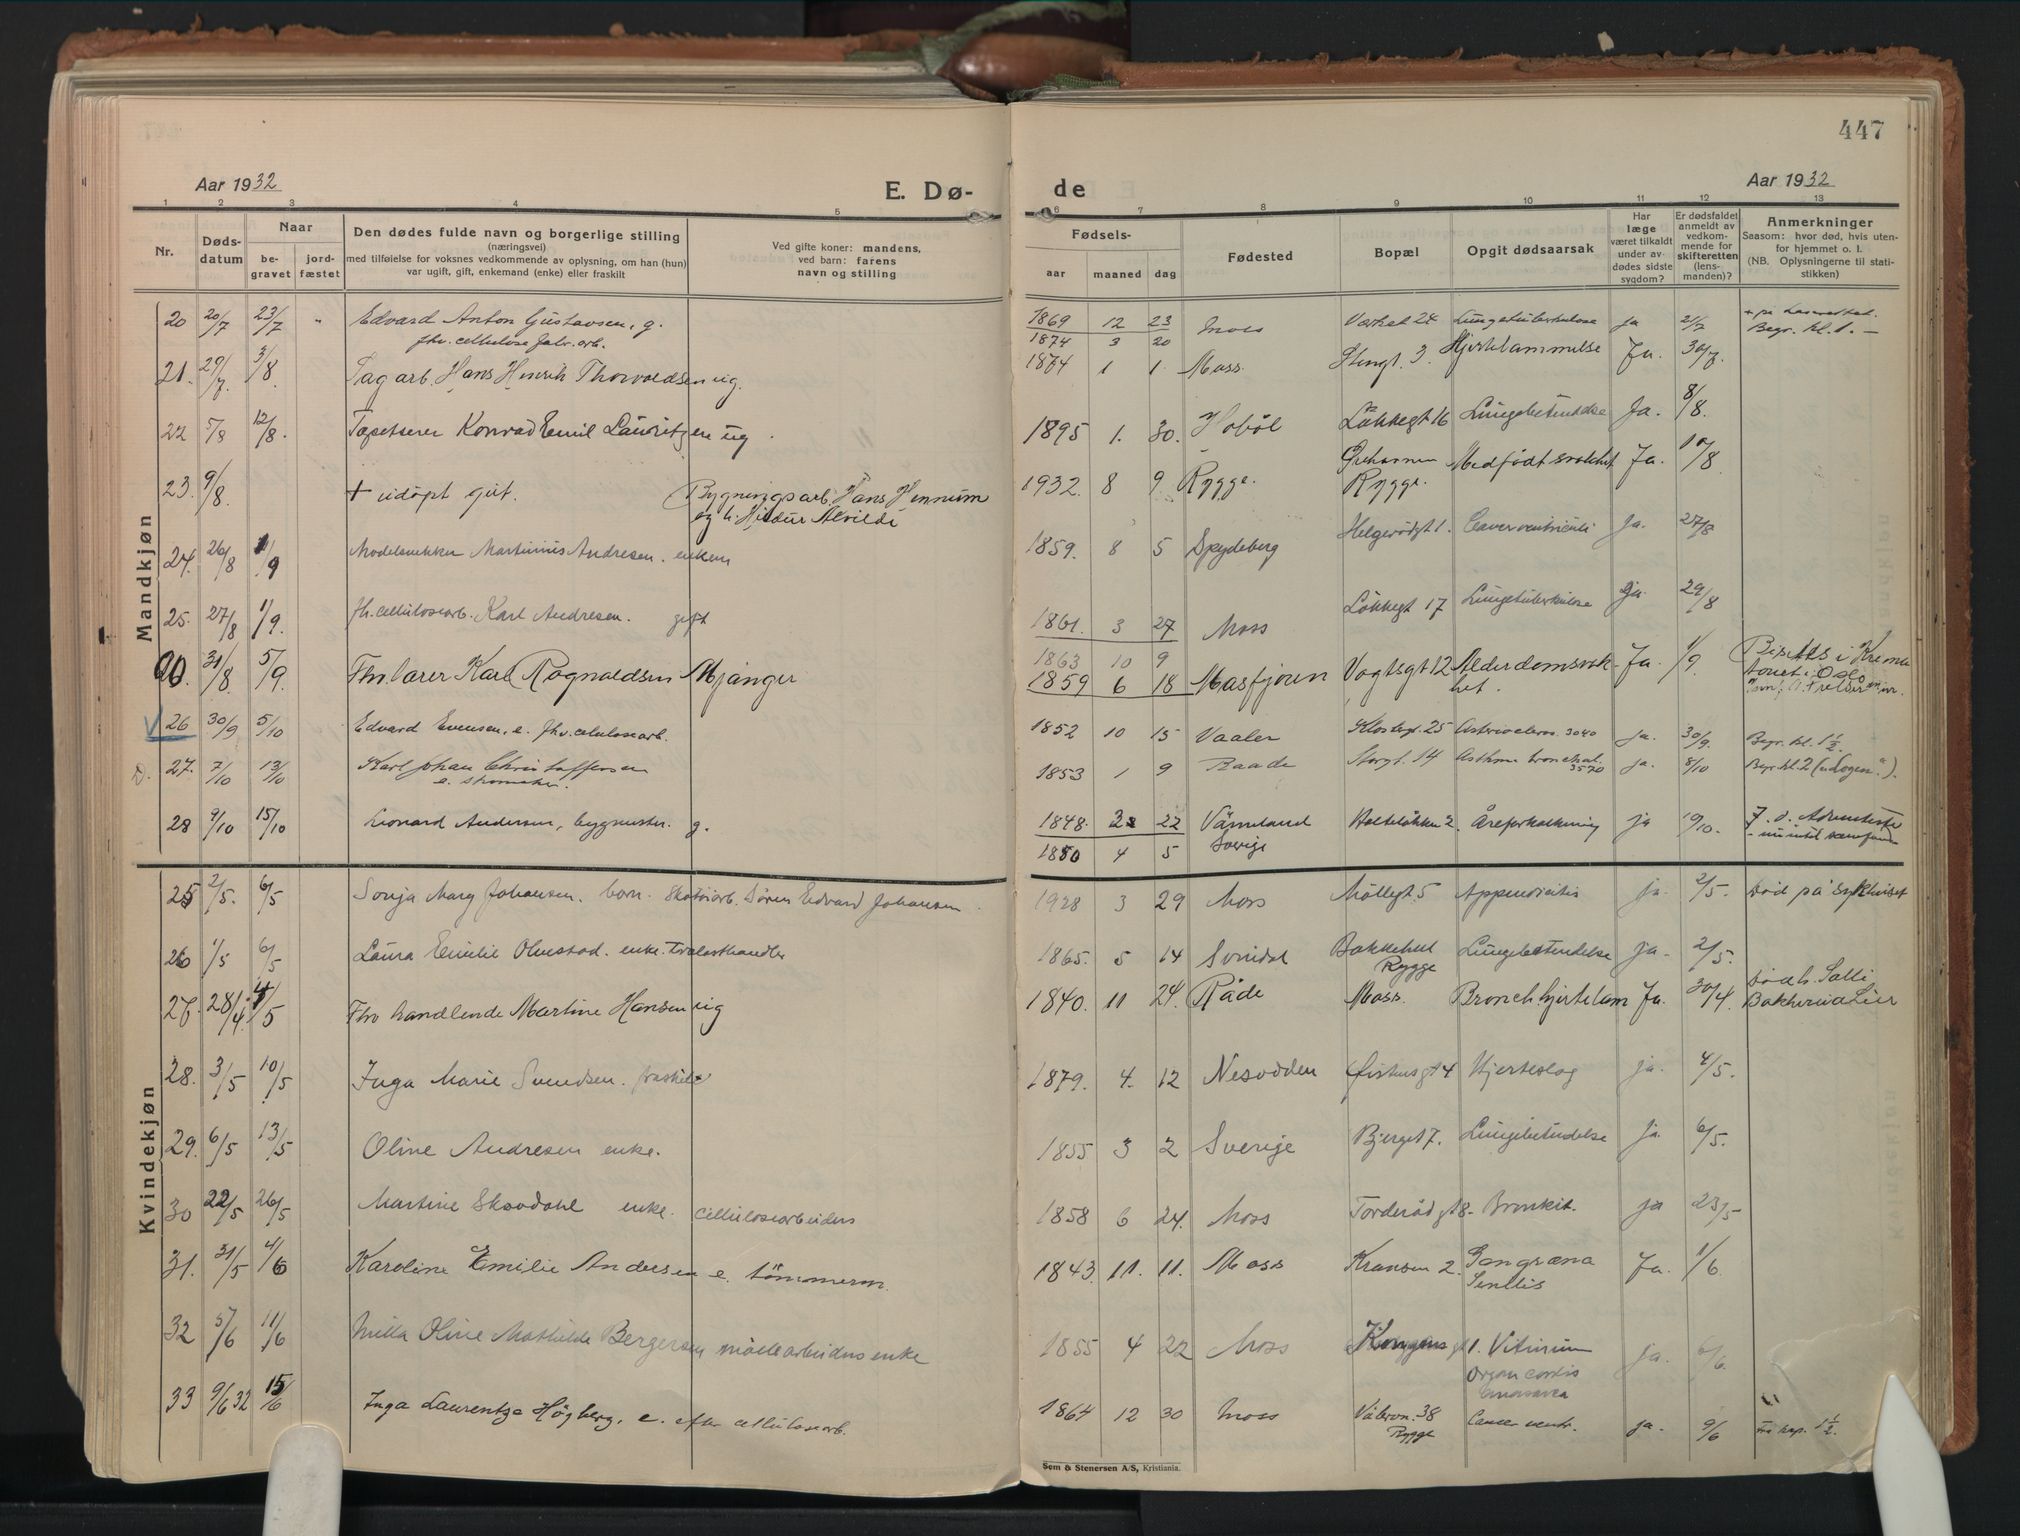 447
Aar 1932
E. Dø-
de
Aar 1932
1 2 3 4 5 6 7 8 9 10 11 12 13
Nr.
Døds-
datum
Naar
be-
gravet
jord-
fæstet
Den dødes fulde navn og borgerlige stilling
(næringsvei)
med tilføielse for voksnes vedkommende av oplysning, om han (hun)
var ugift, gift, enkemand (enke) eller fraskilt
Ved gifte koner: mandens,
ved barn: farens
navn og stilling
Fødsels-
aar maaned dag
Fødested
Bopæl
Opgit dødsaarsak
Har
læge
været tilkaldt
under av-
dødes sidste
sygdom?
Er dødsfaldet
anmeldt av
vedkom-
mende for
skifteretten
(lens-
manden)?
Anmerkninger
Saasom: hvor død, hvis uten-
for hjemmet o. l.
(NB. Oplysningerne til stati-
stikken)
Mandkjøn
20 20/7 23/7 " Edvard Anton Gustavsen, g. 1869 12 23 Moss Værket 24 Lungetuberkulose ja 21/7
fhv. cellulose fabr. arb. 1874 3 20 Begr. kl. 1. -
21. 29/7 3/8 Sagarb. Hans Henrik Thorvaldsen ug. 1874 1 1 Moss. Stengt. 3. Hjertelammelse Ja. 30/7
22 5/8 12/8. Tapetserer Konrad Emil Lauritzen ug. 1895 1. 30. Hobøl Løkkegt 16 Lungebetendelse Ja. 8/8.
23. 9/8. + udøpt gut. Bygningsarb. Hans Hennum 1932. 8 9. Rygge. Rygge. Medfødt svakhet Ja. 10/8
og h. Hildur Alvilde
24. 26/8 1/9 Modelsnekker Martinius Andresen. enkem 1859. 8 5 Spydeberg Helgerødgt 1. Cancer ventriculi Ja. 27/8
25. 27/8 1/9. fh. cellulosearb. Karl Andresen. gift 1861. 3 27 Moss Løkkegt 17 Lungetuberkulose Ja 29/8
1863 10 9
31/8. 5/9. Fhv. lærer Karl Rognaldsen Mjanger 1859 6 18 Masfjorden Vogtsgt 12 Alderdomssvak- Ja. 1/9
het.
Bisattes i Krema
toriet i Oslo
26 30/9 5/10 Edvard Evensen, e. fhv. celulosearb. 1852 10 15 Vaaler Klostergt. 25 3040 ja. 30/9. Begr. kl. 1½.
D. 27. 7/10 13/10 Karl Johan Christoffersen 1853 1 9 Raade Storgt. 14 Asthma bronchial. 3570 ja. 8/10 Begr. kl. 2 ("Logen").
e. skomaker.
28 9/10 15/10 Leonard Andersen, bygmester. g. 1848. 22 Värmland Holteløkken 2. Åreforkalkning ja 10/10.
1850 4 5 Sverige
Kvindekjøn
25 2/5. 6/5 Sonja Marg Johansen. barn. Skotøiarb. Søren Edvard Johansen. 1928 3 29 Moss Møllegt. 5 Appendicitis ja. 2/5. Død på sykehuset
26 1/5 6/5 Laura Emilie Olmestad. enke. Trælasthandler 1865. 5 14 Bakkehul Lungebetendelse ja. 2/5.
Rygge
27. 28/4. 4/5 Fhv handlende Martine Hansen ug 1840. 11 24. Råde Moss. Bronch. hjertelam Ja. 30/4.
Bakkerud Lier
28. 3/5 10/5 Inga Marie Svendsen. fraskilt 1879. 4. 12 Nesodden gt 4 Hjerteslag ja. 4/5.
29. 6/5 13/5 Oline Andresen enke. 1855 3 2 Sverige Bjerget 7. Lungebetendelse ja. 6/5.
30 22/5 26/5 Martine Skovdahl enke. cellulosearbeiders 1858 6 24. Moss Torderød gt 8 - Bronkit. ja 23/5
31. 31/5 4/6 Karoline Emilie Andersen e. tömmerm. 1843. 11. 11. Moss Kransen 2. Gangræna Ja. 1/6.
Senilis
32 5/6 11/6 Milla Oline Mathilde Bergersen møllearbeiders enke 1855 4 22 Moss Kongens gt 1. Vitium ja. 6/6.
organ cordis
33 9/6 32 15/6 Inga Laurentze Høgberg, e. efter cellulosearb. 1864 12 30 Moss Vålerv. 38 Cancer ventr. ja. 9/6 Fra kap. 1½.
Rygge
Sem & Stenersen A/S, Kristiania.